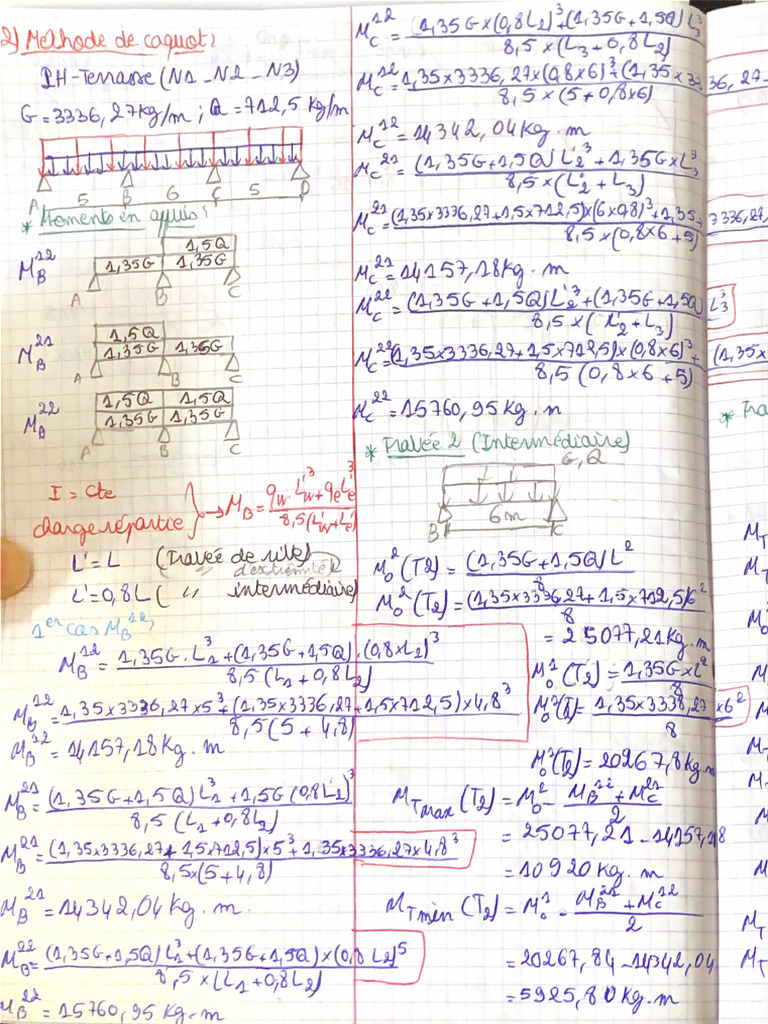 2) Methode de caquot:
PH-Terrasse (N1_N2_N3)
G=3336,27kg/m ; Q=712,5 kg/m
A 5 B 6 C 5 D
* Moments en appuis:
M_B^12
1,5Q
1,35G 1,35G
A B C
M_B^21
1,5Q
1,35G 1,35G
A B C
M_B^22
1,5Q 1,5Q
1,35G 1,35G
A B C
I = Cte
charge répartie
→ M_B = (q_w L'_w^3 + q_e L'_e^3) / 8,5(L'_w+L'_e)
L'=L (travée de rive)
d'extremité
L'=0,8L ( " intermédiaire)
1er cas M_B^12:
M_B^12 = (1,35G.L_1^3+(1,35G+1,5Q).(0,8xL_2)^3) / 8,5(L_1+0,8L_2)
M_B^12 = (1,35x3336,27x5^3+(1,35x3336,27+1,5x712,5)x4,8^3) / 8,5(5+4,8)
M_B^12 = 14157,18Kg.m
M_B^21 = ((1,35G+1,5Q)L_1^3+1,5G(0,8L_2)^3) / 8,5(L_1+0,8L_2)
M_B^21 = ((1,35x3336,27+1,5x712,5)x5^3+1,35x3336,27x4,8^3) / 8,5x(5+4,8)
M_B^21 = 14342,04kg.m.
M_B^22 = ((1,35G+1,5Q)L_1^3+(1,35G+1,5Q)x(0,8L_2)^5) / 8,5x(L_1+0,8L_2)
M_B^22 = 15760,95 Kg.m
M_C^12 = (1,35Gx(0,8L_2)^3+(1,35G+1,5Q)L_3^3) / 8,5x(L_3+0,8L_2)
M_C^12 = 1,35x3336,27x(0,8x6)^3+(1,35x3336,27 / 8,5x(5+0,8x6)
M_C^12 = 14342,04kg.m
M_C^21 = ((1,35G+1,5Q)L'_2^3+1,35GxL_3^3) / 8,5x(L'_2+L_3)
M_C^21 = (1,35x3336,27+1,5x712,5)x(6x0,8)^3+1,35x3336,27 / 8,5x(0,8x6+5)
M_C^21 = 14157,18Kg.m
M_C^22 = ((1,35G+1,5Q)L'_2^3+(1,35G+1,5Q)L_3^3) / 8,5x(L'_2+L_3)
M_C^22 = (1,35x3336,27+1,5x712,5)x(0,8x6)^3+(1,35x / 8,5(0,8x6+5)
M_C^22 = 15760,95kg.m
* Travée 2 (Intermédiaire)
G,Q
B 6m C
M_0^2(T2) = (1,35G+1,5Q)L^2 / 8
M_0^2(T2) = (1,35x3336,27+1,5x712,5)6^2 / 8
= 25077,21kg.m
M_0^1(T2) = 1,35GxL^2 / 8
= 1,35x3338,27x6^2 / 8
= 20267,8kg.m
M_Tmax(T2) = M_0^2 - (M_B^12+M_C^21) / 2
= 25077,21-14157,18
= 10920Kg.m
M_Tmin(T2) = M_0^1 - (M_B^21+M_C^12) / 2
= 20267,84-14342,04
= 5925,80Kg.m